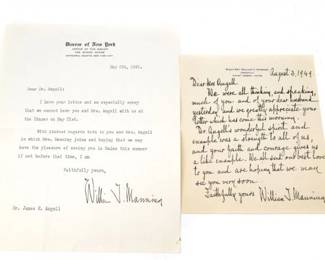 Diocese of New York
OFFICE OF THE BISHOP
May 6th, 1941.
Dear Dr. Angell:
I have your letter and am especially sorry
that we cannot have you and Mrs. Angell with us at
the Dinner on May 21st.
With kindest regards both to you and Mrs. Angell
in which Mrs. Manning joins and hoping that we may
have the pleasure of seeing you in Maine this summer
if not before that time, I am
Faithfully yours,
William T. Manning
Dr. James R. Angell
August 3, 1949
Dear Mrs Angell
We were all thinking and speaking
much of you and of your dear husband
yesterday, and we greatly appreciate your
letter which has come this morning.
Dr. Angell's spirit, and
example was a strength to all of us,
and your faith and courage gives us
a like example. We all send our best love
to you and are hoping that we may
see you very soon.
Faithfully yours William T. Manning